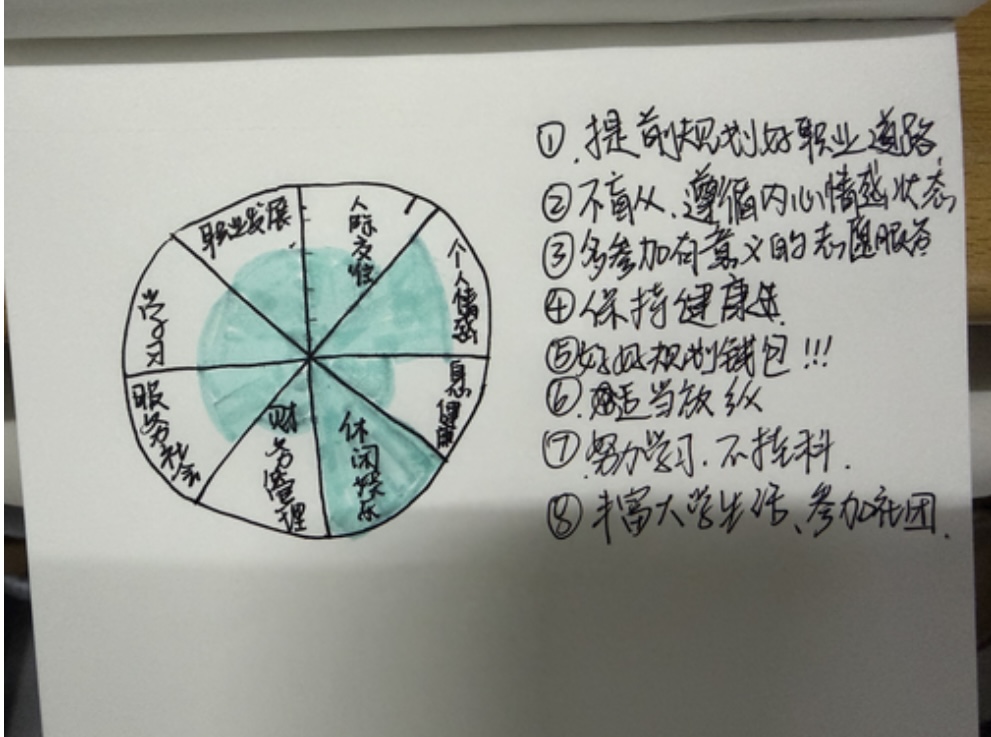 职业发展
人际交往
个人情感
身心健康
休闲娱乐
财务管理
服务社会
学习
①.提前规划好职业道路
②不盲从、遵循内心情感状态
③多参加有意义的志愿服务
④保持健康
⑤好好规划钱包!!!
⑥.适当放纵
⑦努力学习.不挂科.
⑧丰富大学生活、参加社团.